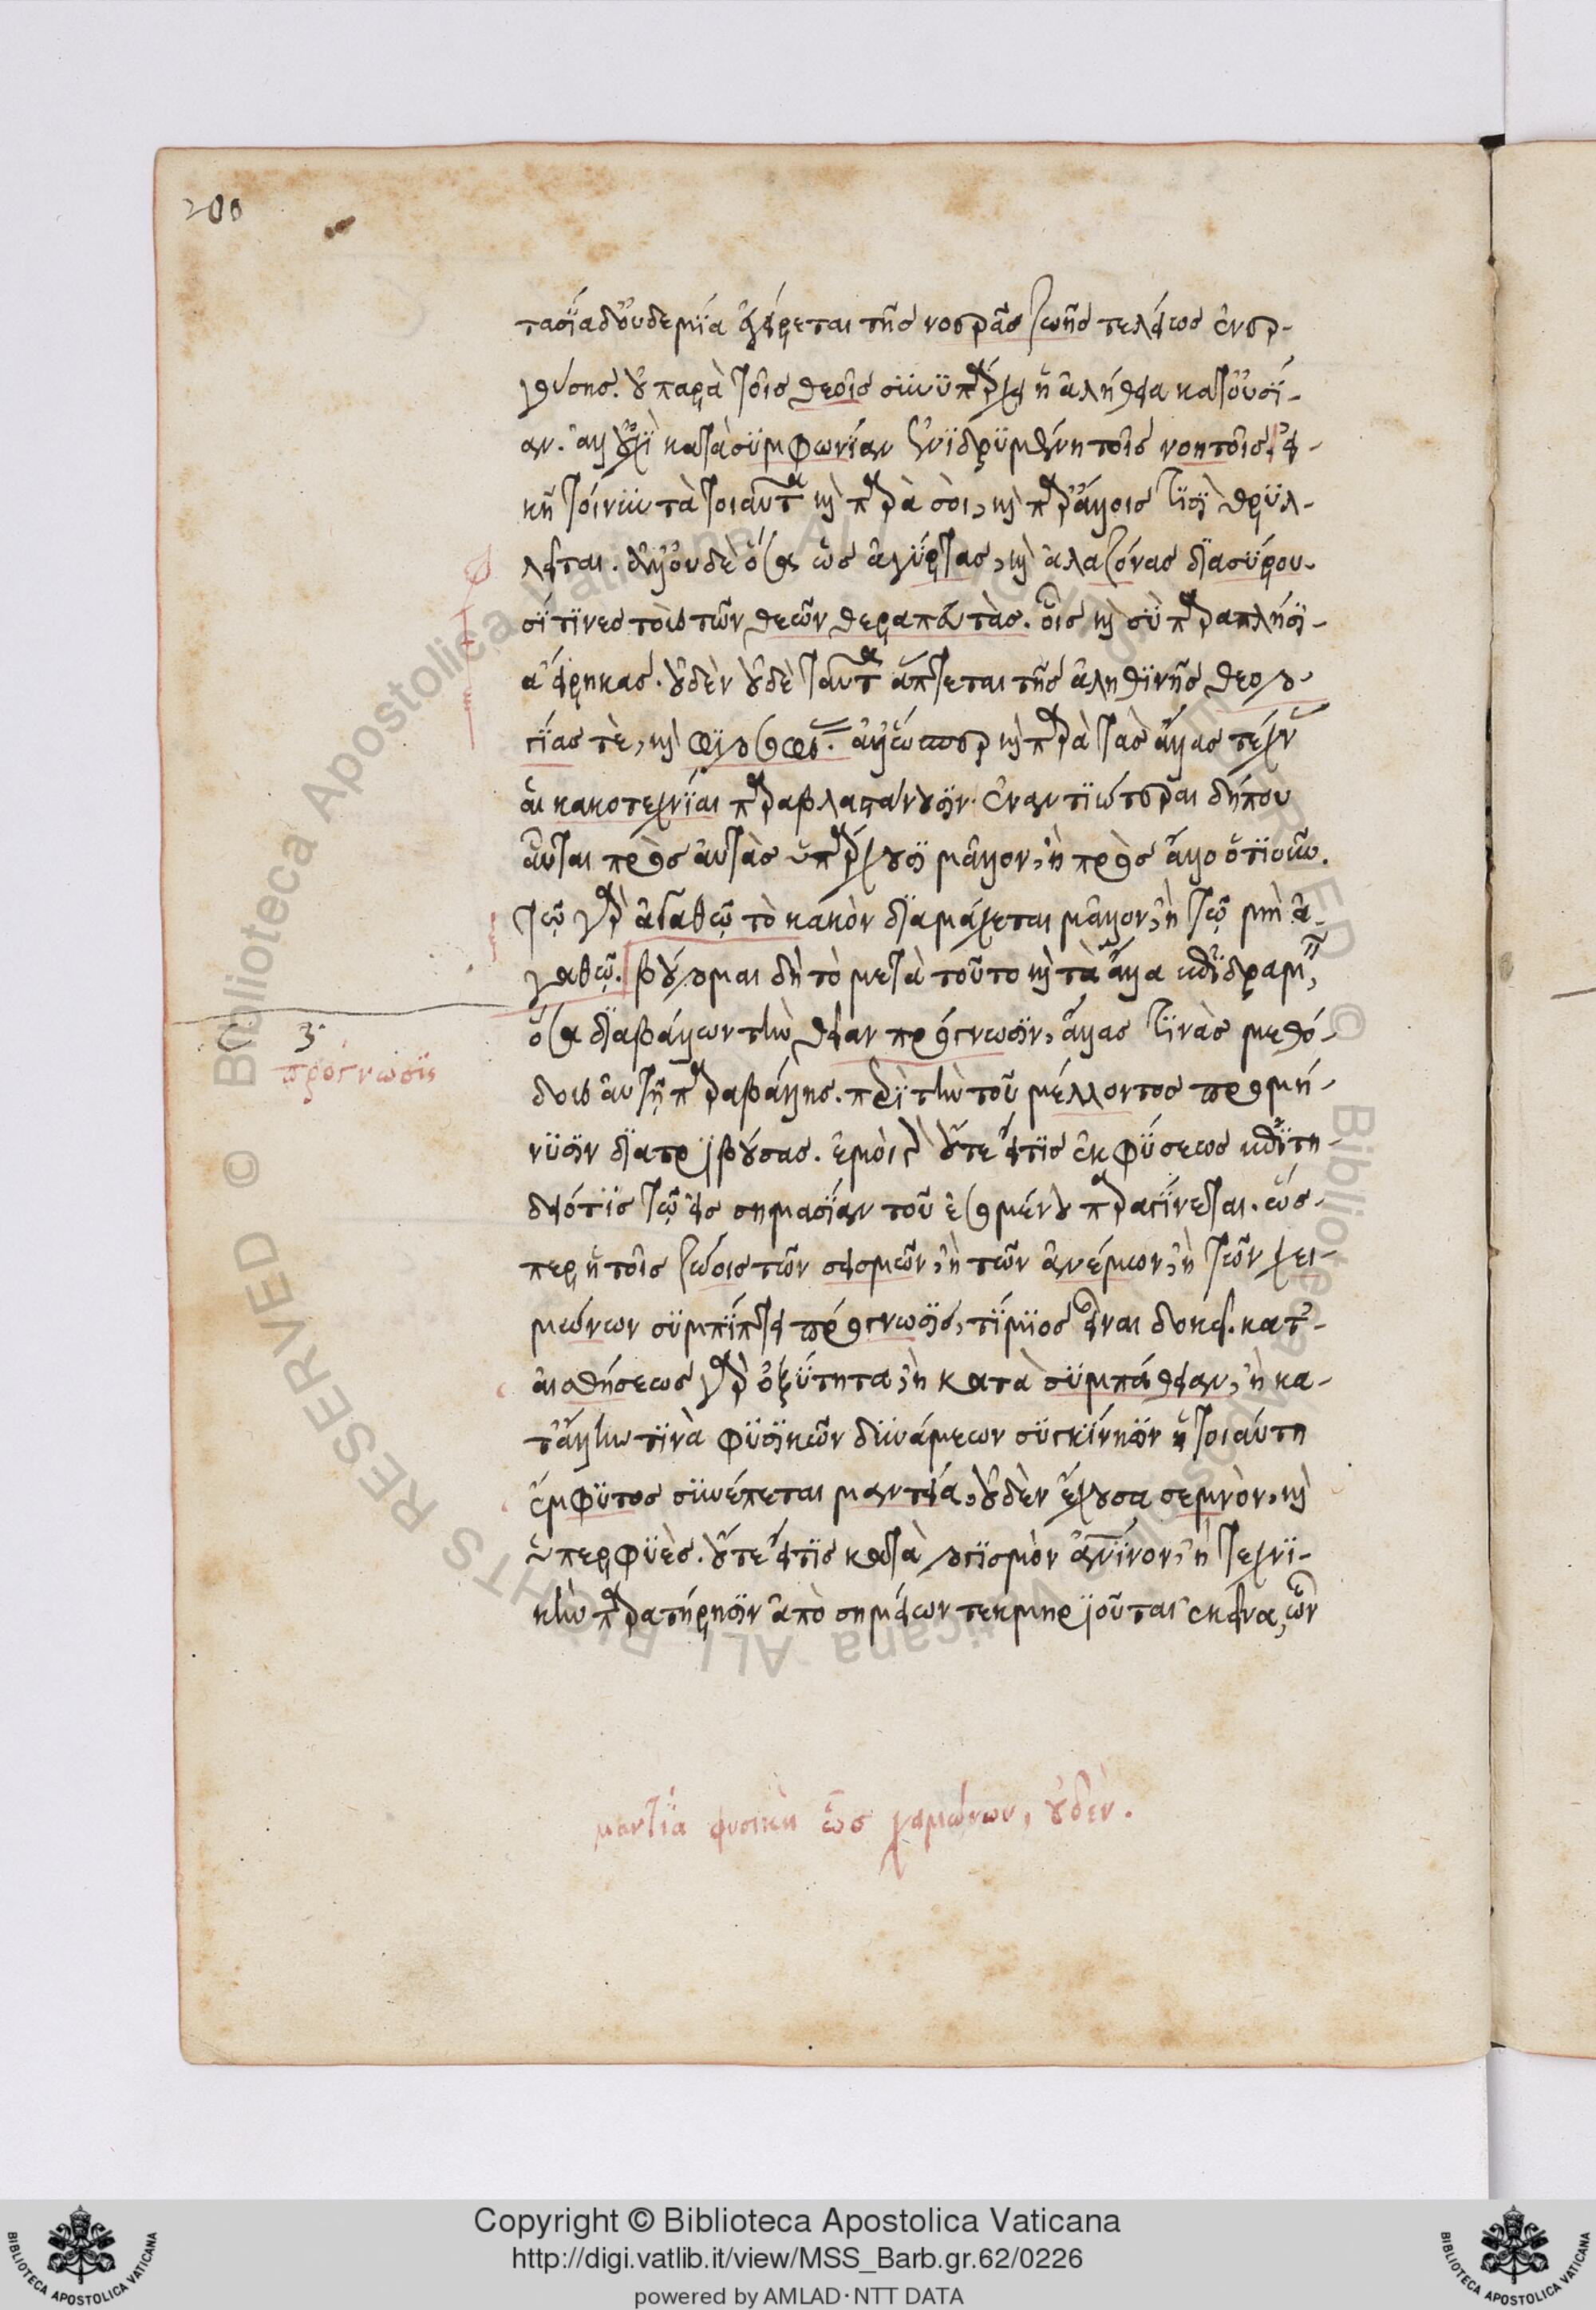 200
τασία δ' οὐδεμία ἐγείρεται τῆς νοερᾶς ζωῆς τελείως ἐνερ-
γούσης. οὐ παρὰ τοῖς θεοῖς συνυπάρχει ἡ ἀλήθεια κατ' οὐσί-
αν. ἀλλ' οὐχὶ κατὰ συμφωνίαν ἐνιδρυμένη τοῖς νοητοῖς, εἰ-
κῆ τοίνυν τὰ τοιαῦτα καὶ παρὰ σοὶ, καὶ παρ' ἄλλοις τισὶ θρυλ-
λεῖται. ἀλλ' οὐδὲ ὅσα ὡς ἀγύρτας, καὶ ἀλαζόνας διασύρου-
σί τινες τοὺς τῶν θεῶν θεραπευτὰς. οἷς καὶ σὺ παραπλήσι-
α εἴρηκας. οὐδὲν οὐδὲ ταῦτα ἅπτεται τῆς ἀληθινῆς θεολο-
γίας τὲ, καὶ θεουργίας. ἀλλ' ὥσπερ καὶ παρὰ τὰς ἄλλας τέχνας
αἱ κακοτεχνίαι παραβλαστάνουσιν. ἐναντιώτεραι δήπου
αὗται πρὸς αὐτὰς ὑπάρχουσι μᾶλλον, ἢ πρὸς ἄλλο ὁτιοῦν.
τῷ γὰρ ἀγαθῷ τὸ κακὸν διαμάχεται μᾶλλον, ἢ τῷ μὴ ἀ-
γαθῷ. βούλομαι δὴ τὸ μετὰ τοῦτο καὶ τὰ ἄλλα ἐπιδραμεῖν,
ὅσα διαβάλλων τὴν θείαν πρόγνωσιν, ἄλλας τινὰς μεθό-
δους αὐτῇ παραβάλλεις. περὶ τὴν τοῦ μέλλοντος προμή-
νυσιν διατριβούσας. ἐμοὶ γὰρ οὔτε εἴ τις ἐκ φύσεως ἐπιτη-
δειότις τῷ εἰς σημασίαν τοῦ ἐσομένου παραγίνεται. ὥσ-
περ ἡ τοῖς ζώοις τῶν σεισμῶν, ἢ τῶν ἀνέμων, ἢ τῶν χει-
μώνων συμπίπτει πρόγνωσις, τίμιος εἶναι δοκεῖ. κατ'
αἰσθήσεως γὰρ ὀξύτητα, ἢ κατὰ συμπάθειαν, ἢ κα-
τ' ἄλλην τινὰ φυσικῶν δυνάμεων συγκίνησιν ἡ τοιαύτη
ἔμφυτος συνέπεται μαντεία, οὐδὲν ἔχουσα σεμνὸν, καὶ
ὑπερφυὲς. οὔτε εἴ τις κατὰ λογισμὸν ἀνθρώπινον, ἢ τεχνι-
κὴν παρατήρησιν ἀπὸ σημείων τεκμηριοῦται ἐκεῖνα, ὧν
γ. 3.
πρόγνωσις
μαντεία φυσικὴ ἕως χειμώνων, οὐδέν.
Copyright © Biblioteca Apostolica Vaticana
http://digi.vatlib.it/view/MSS_Barb.gr.62/0226
powered by AMLAD·NTT DATA